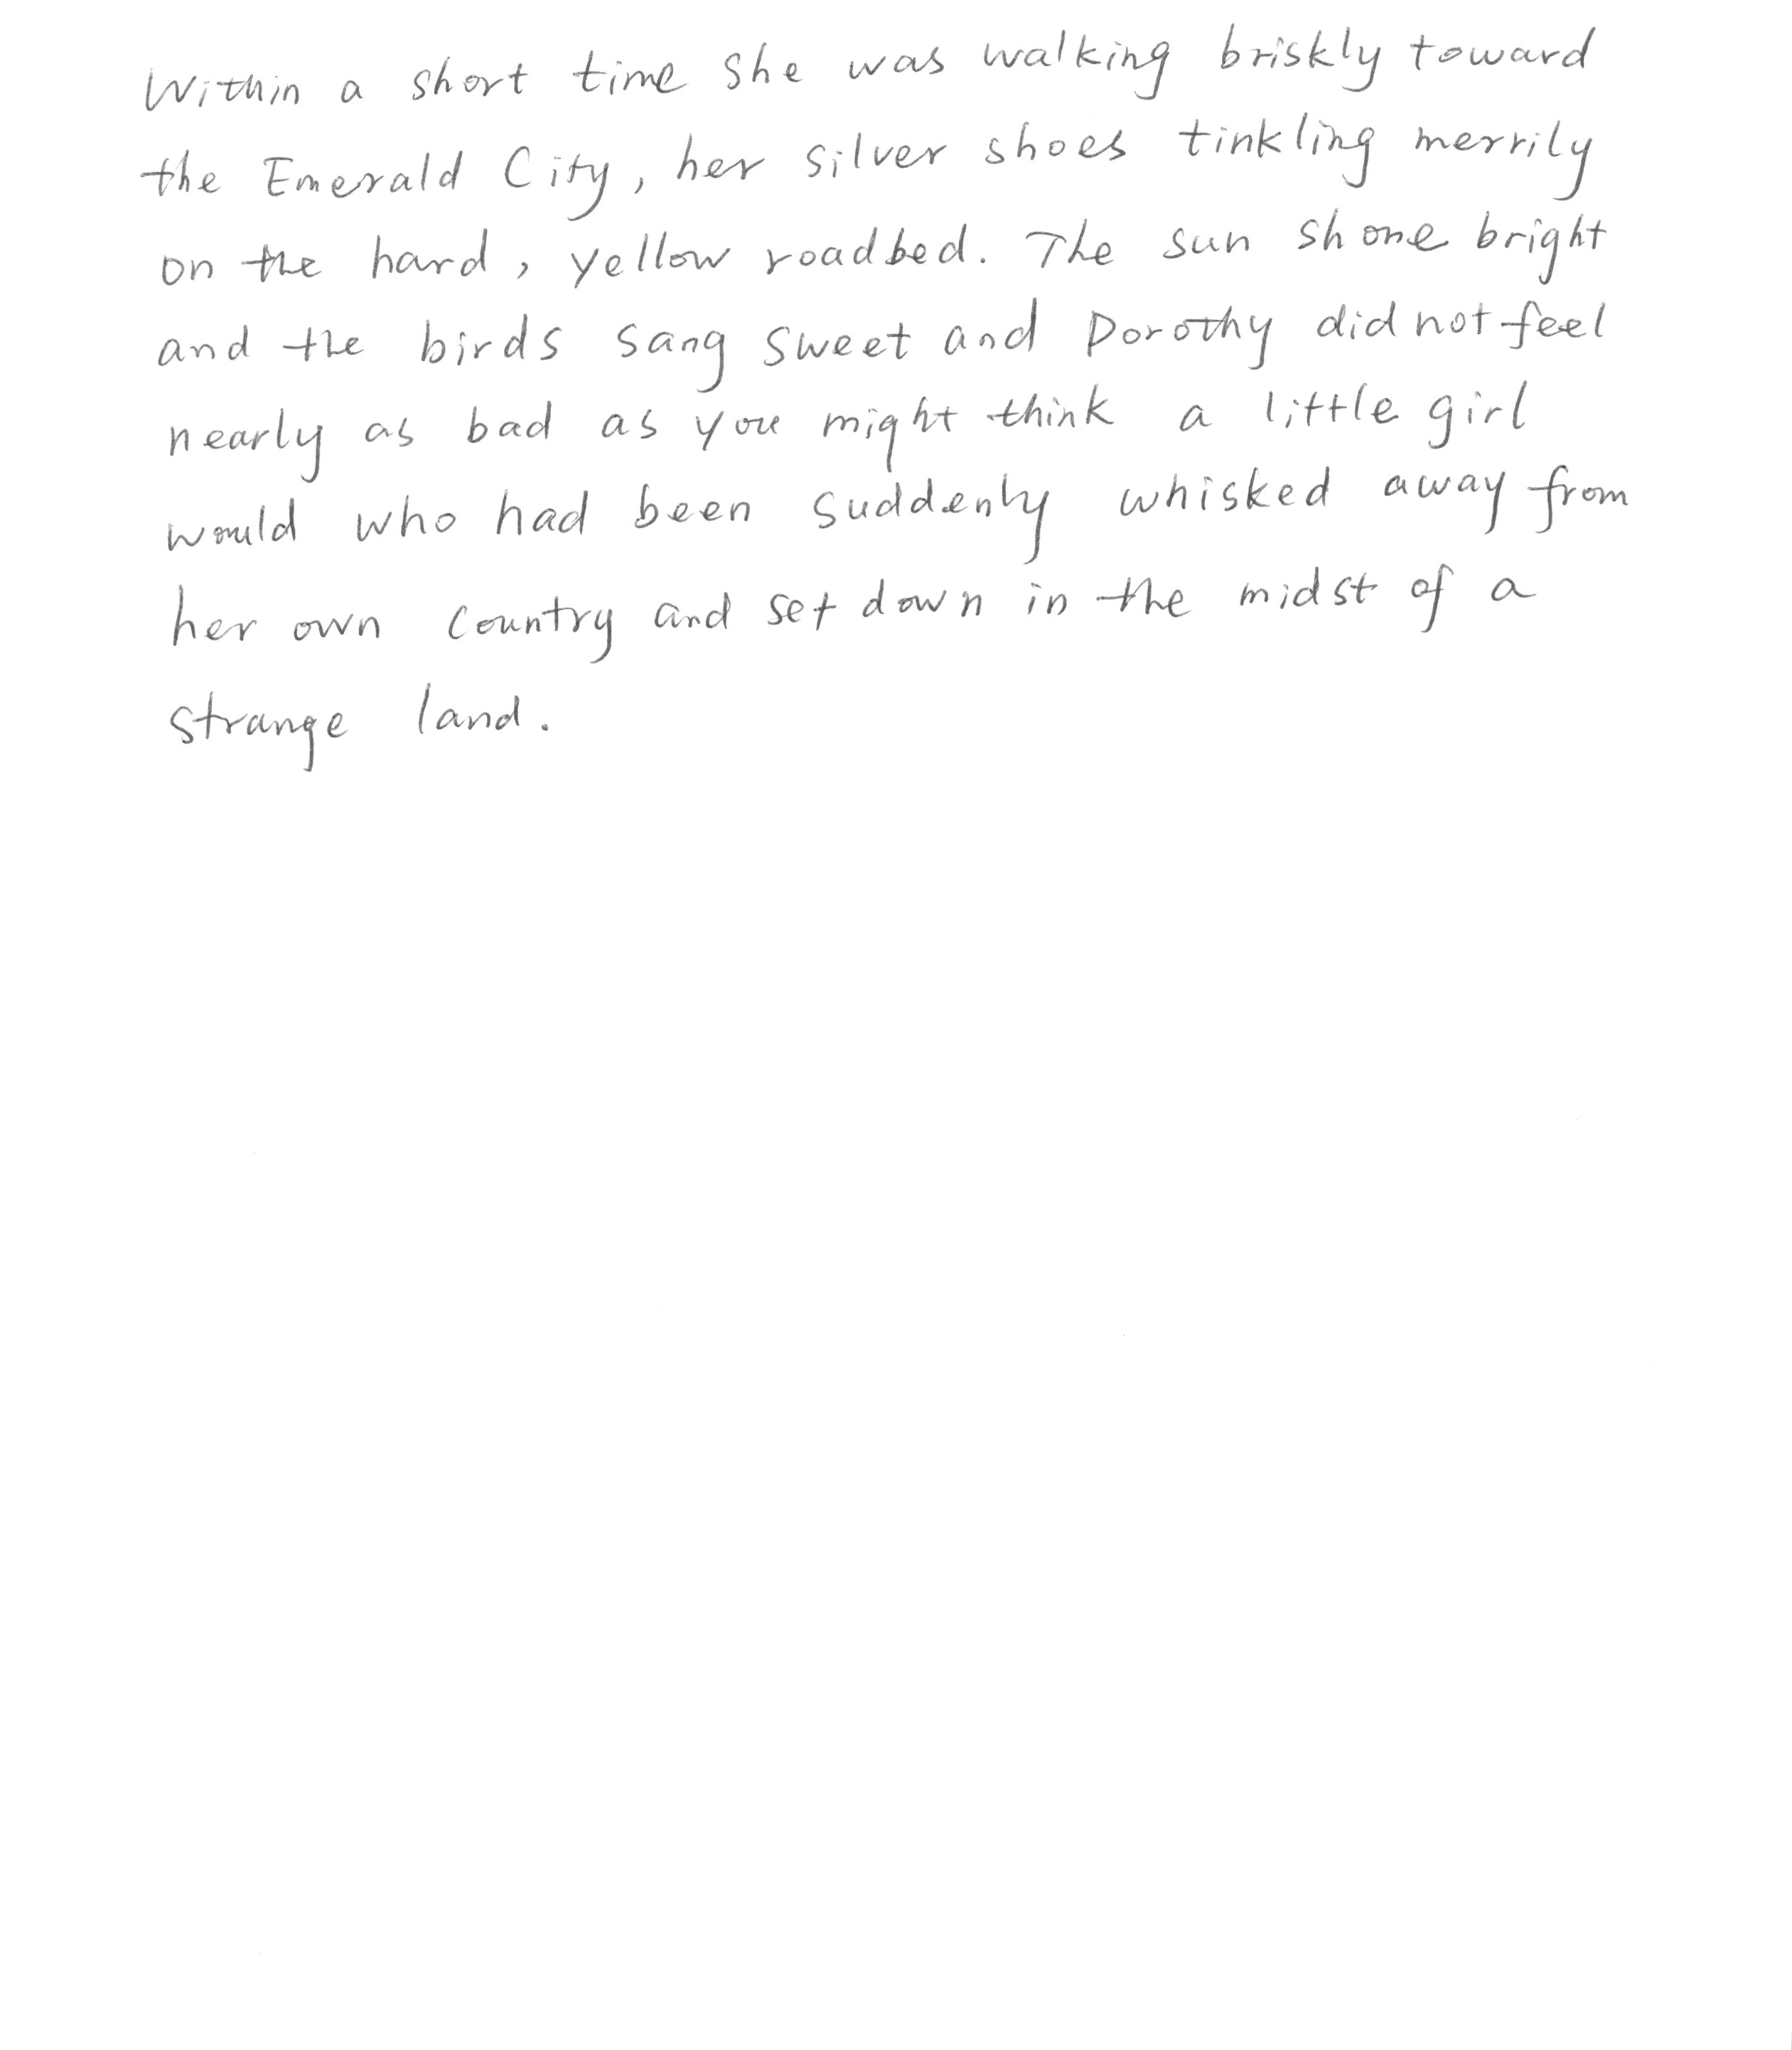 Within a short time she was walking briskly toward
the Emerald City, her silver shoes tinkling merrily
on the hard, yellow roadbed. The sun shone bright
and the birds sang sweet and Dorothy did not feel
nearly as bad as you might think a little girl
would who had been suddenly whisked away from
her own country and set down in the midst of a
strange land.